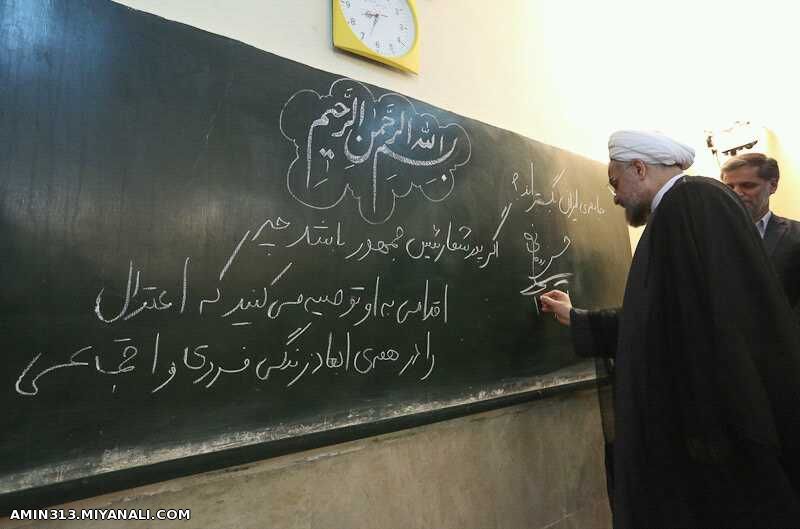 بسم الله الرحمن الرحیم
اگر پدر شما رئیس جمهور باشد چه
اقدامی به او توصیه می کنید که اعتدال
را در همه‌ی ابعاد زندگی فردی و اجتماعی
جامعه‌ی ایران بگستراند؟
AMIN313.MIYANALI.COM